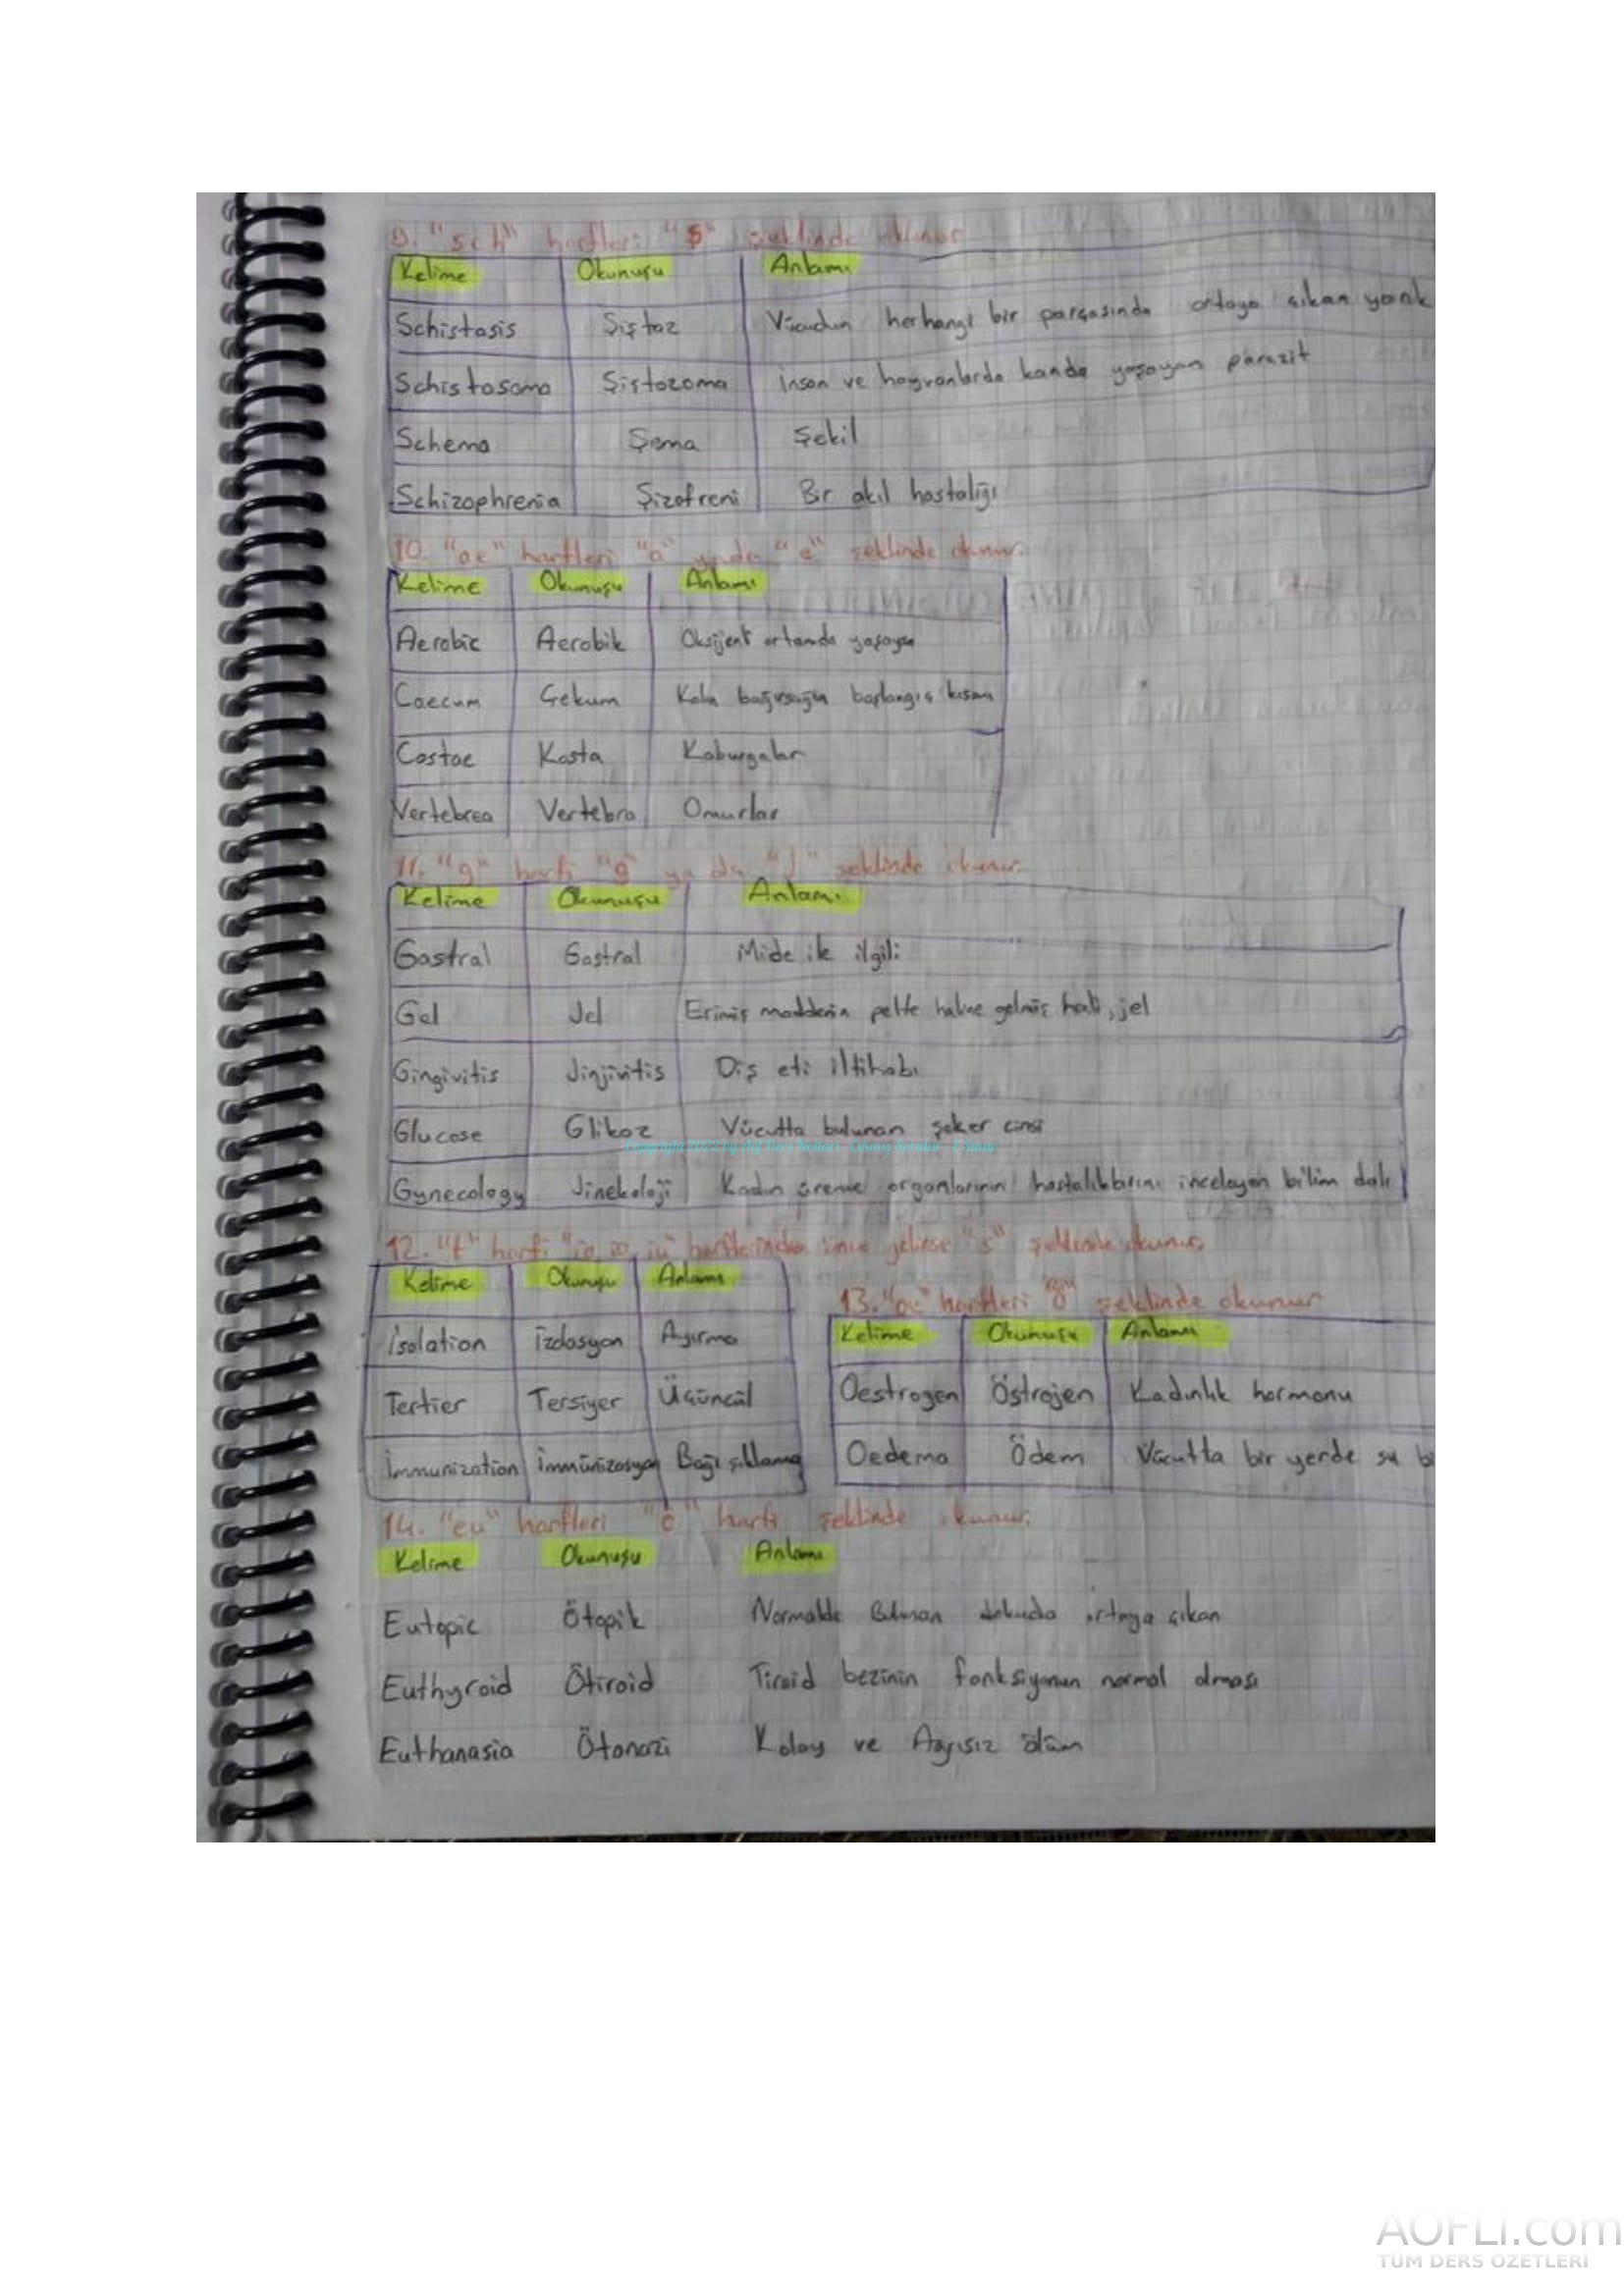 9. "sch" harfleri "ş" şeklinde okunur
Kelime Okunuşu Anlamı
Schistasis Şiştaz Vücudun herhangi bir parçasında ortaya çıkan yarık
Schistosoma Şiştozoma insan ve hayvanlarda kanda yaşayan parazit
Schema Şema Şekil
Schizophrenia Şizofreni Bir akıl hastalığı
10. "ae" harfleri "a" yada "e" şeklinde okunur.
Kelime Okunuşu Anlamı
Aerobic Aerobik Oksijenli ortamda yaşayan
Caecum Çekum Kalın bağırsağın başlangıç kısmı
Costae Kosta Kaburgalar
Vertebrea Vertebra Omurlar
11. "g" harfi "g" ya da "j" şeklinde okunur.
Kelime Okunuşu Anlamı
Gastral Gastral Mide ile ilgili
Gel Jel Erimiş maddenin pelte haline gelmiş hali, jel
Gingivitis Jinjivitis Diş eti iltihabı
Glucose Glikoz Vücutta bulunan şeker cinsi
Gynecology Jinekoloji Kadın üreme organlarının hastalıklarını inceleyen bilim dalı
12. "t" harfi harflerinden önce gelirse "s" şeklinde okunur.
Kelime Okunuşu Anlamı
İsolation İzolasyon Ayırma
Tertier Tersiyer Üçüncül
İmmunization İmmünizasyon Bağışıklama
13. "oe" harfleri "ö" şeklinde okunur
Kelime Okunuşu Anlamı
Oestrogen Östrojen Kadınlık hormonu
Oedema Ödem Vücutta bir yerde su bi
14. "eu" harfleri "ö" harfi şeklinde okunur.
Kelime Okunuşu Anlamı
Eutopic Ötopik Normalde Bulunan dokuda ortaya çıkan
Euthyroid Ötiroid Tiroid bezinin fonksiyonun normal olması
Euthanasia Ötonazi Kolay ve Ağrısız ölüm
AOFLI.com
TÜM DERS ÖZETLERİ